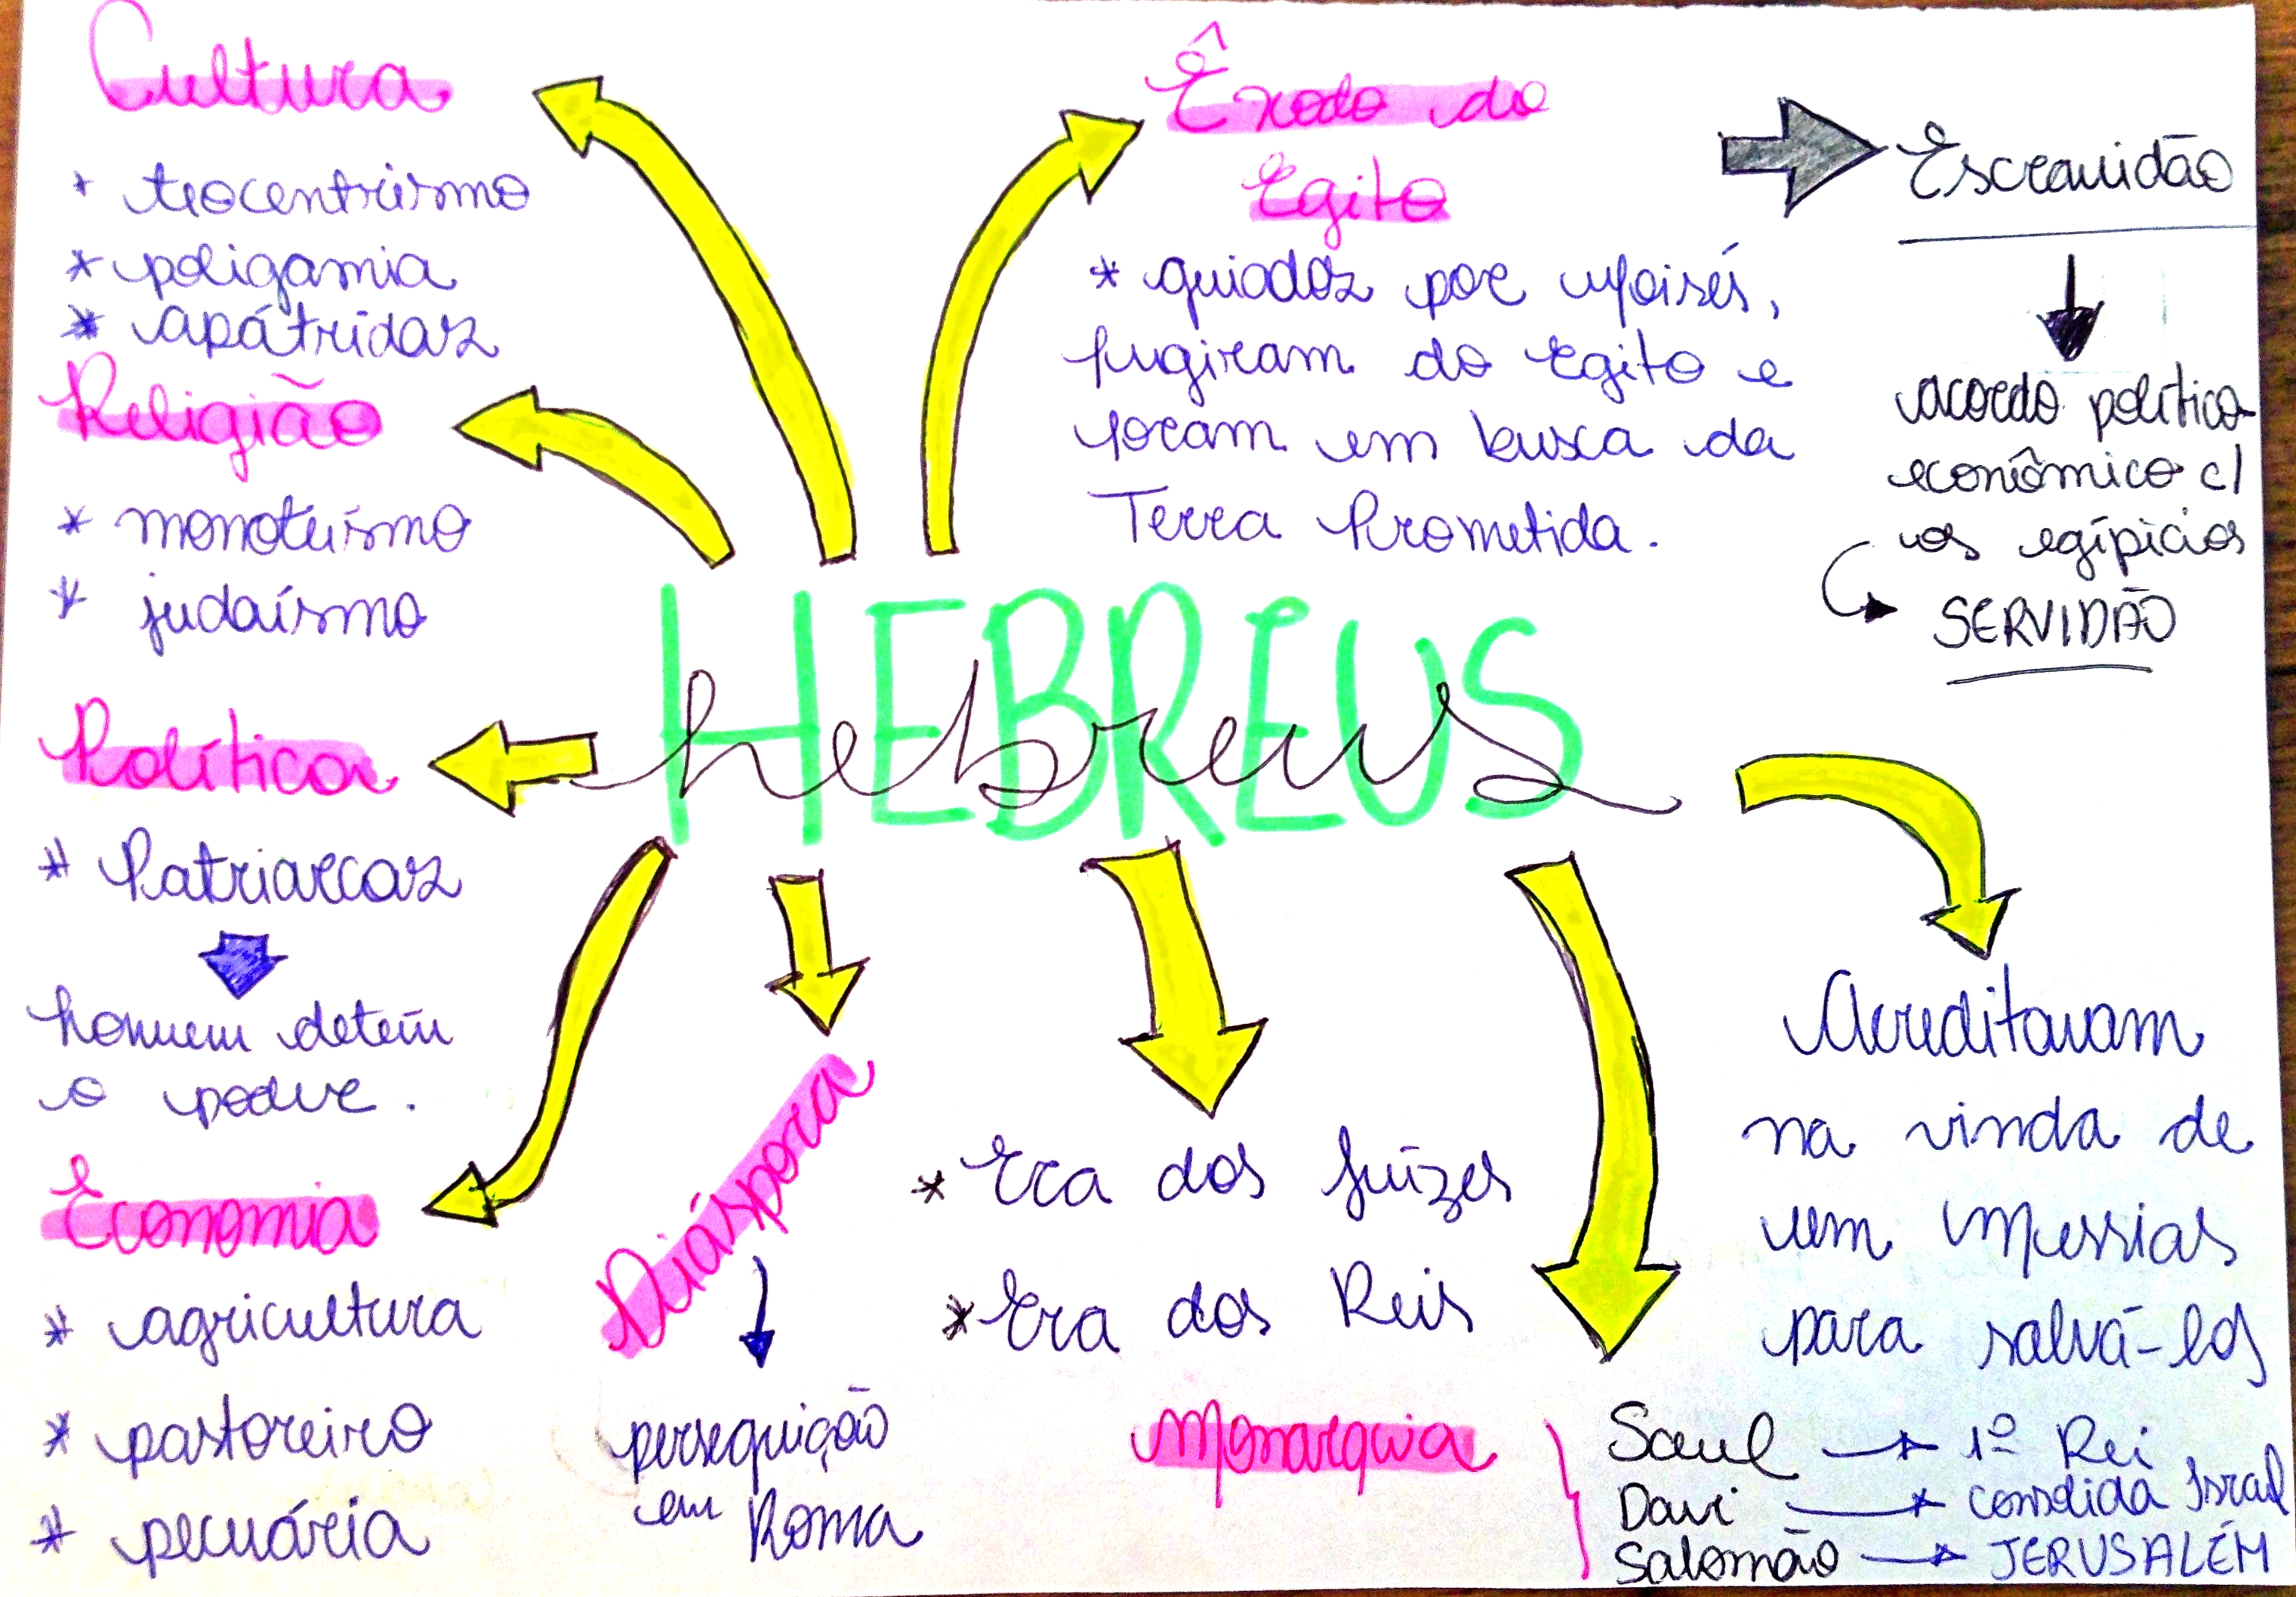 Cultura
* teocentrismo
* poligamia
* apátridas
Religião
* monoteísmo
* judaísmo
Política
* Patriarcas
homem detém
o poder.
Economia
* agricultura
* pastoreiro
* pecuária
Êxodo do
Egito
* guiados por Moisés,
fugiram do Egito e
foram em busca da
Terra Prometida.
Escravidão
acordo político
econômico c/
os egípicios
SERVIDÃO
HEBREUS
hebreus
Diáspora
perseguição
em Roma
* Era dos Juízes
* Era dos Reis
Monarquia
Saul → 1º Rei
Davi → consolida Israel
Salomão → JERUSALÉM
Acreditavam
na vinda de
um Messias
para salvá-los